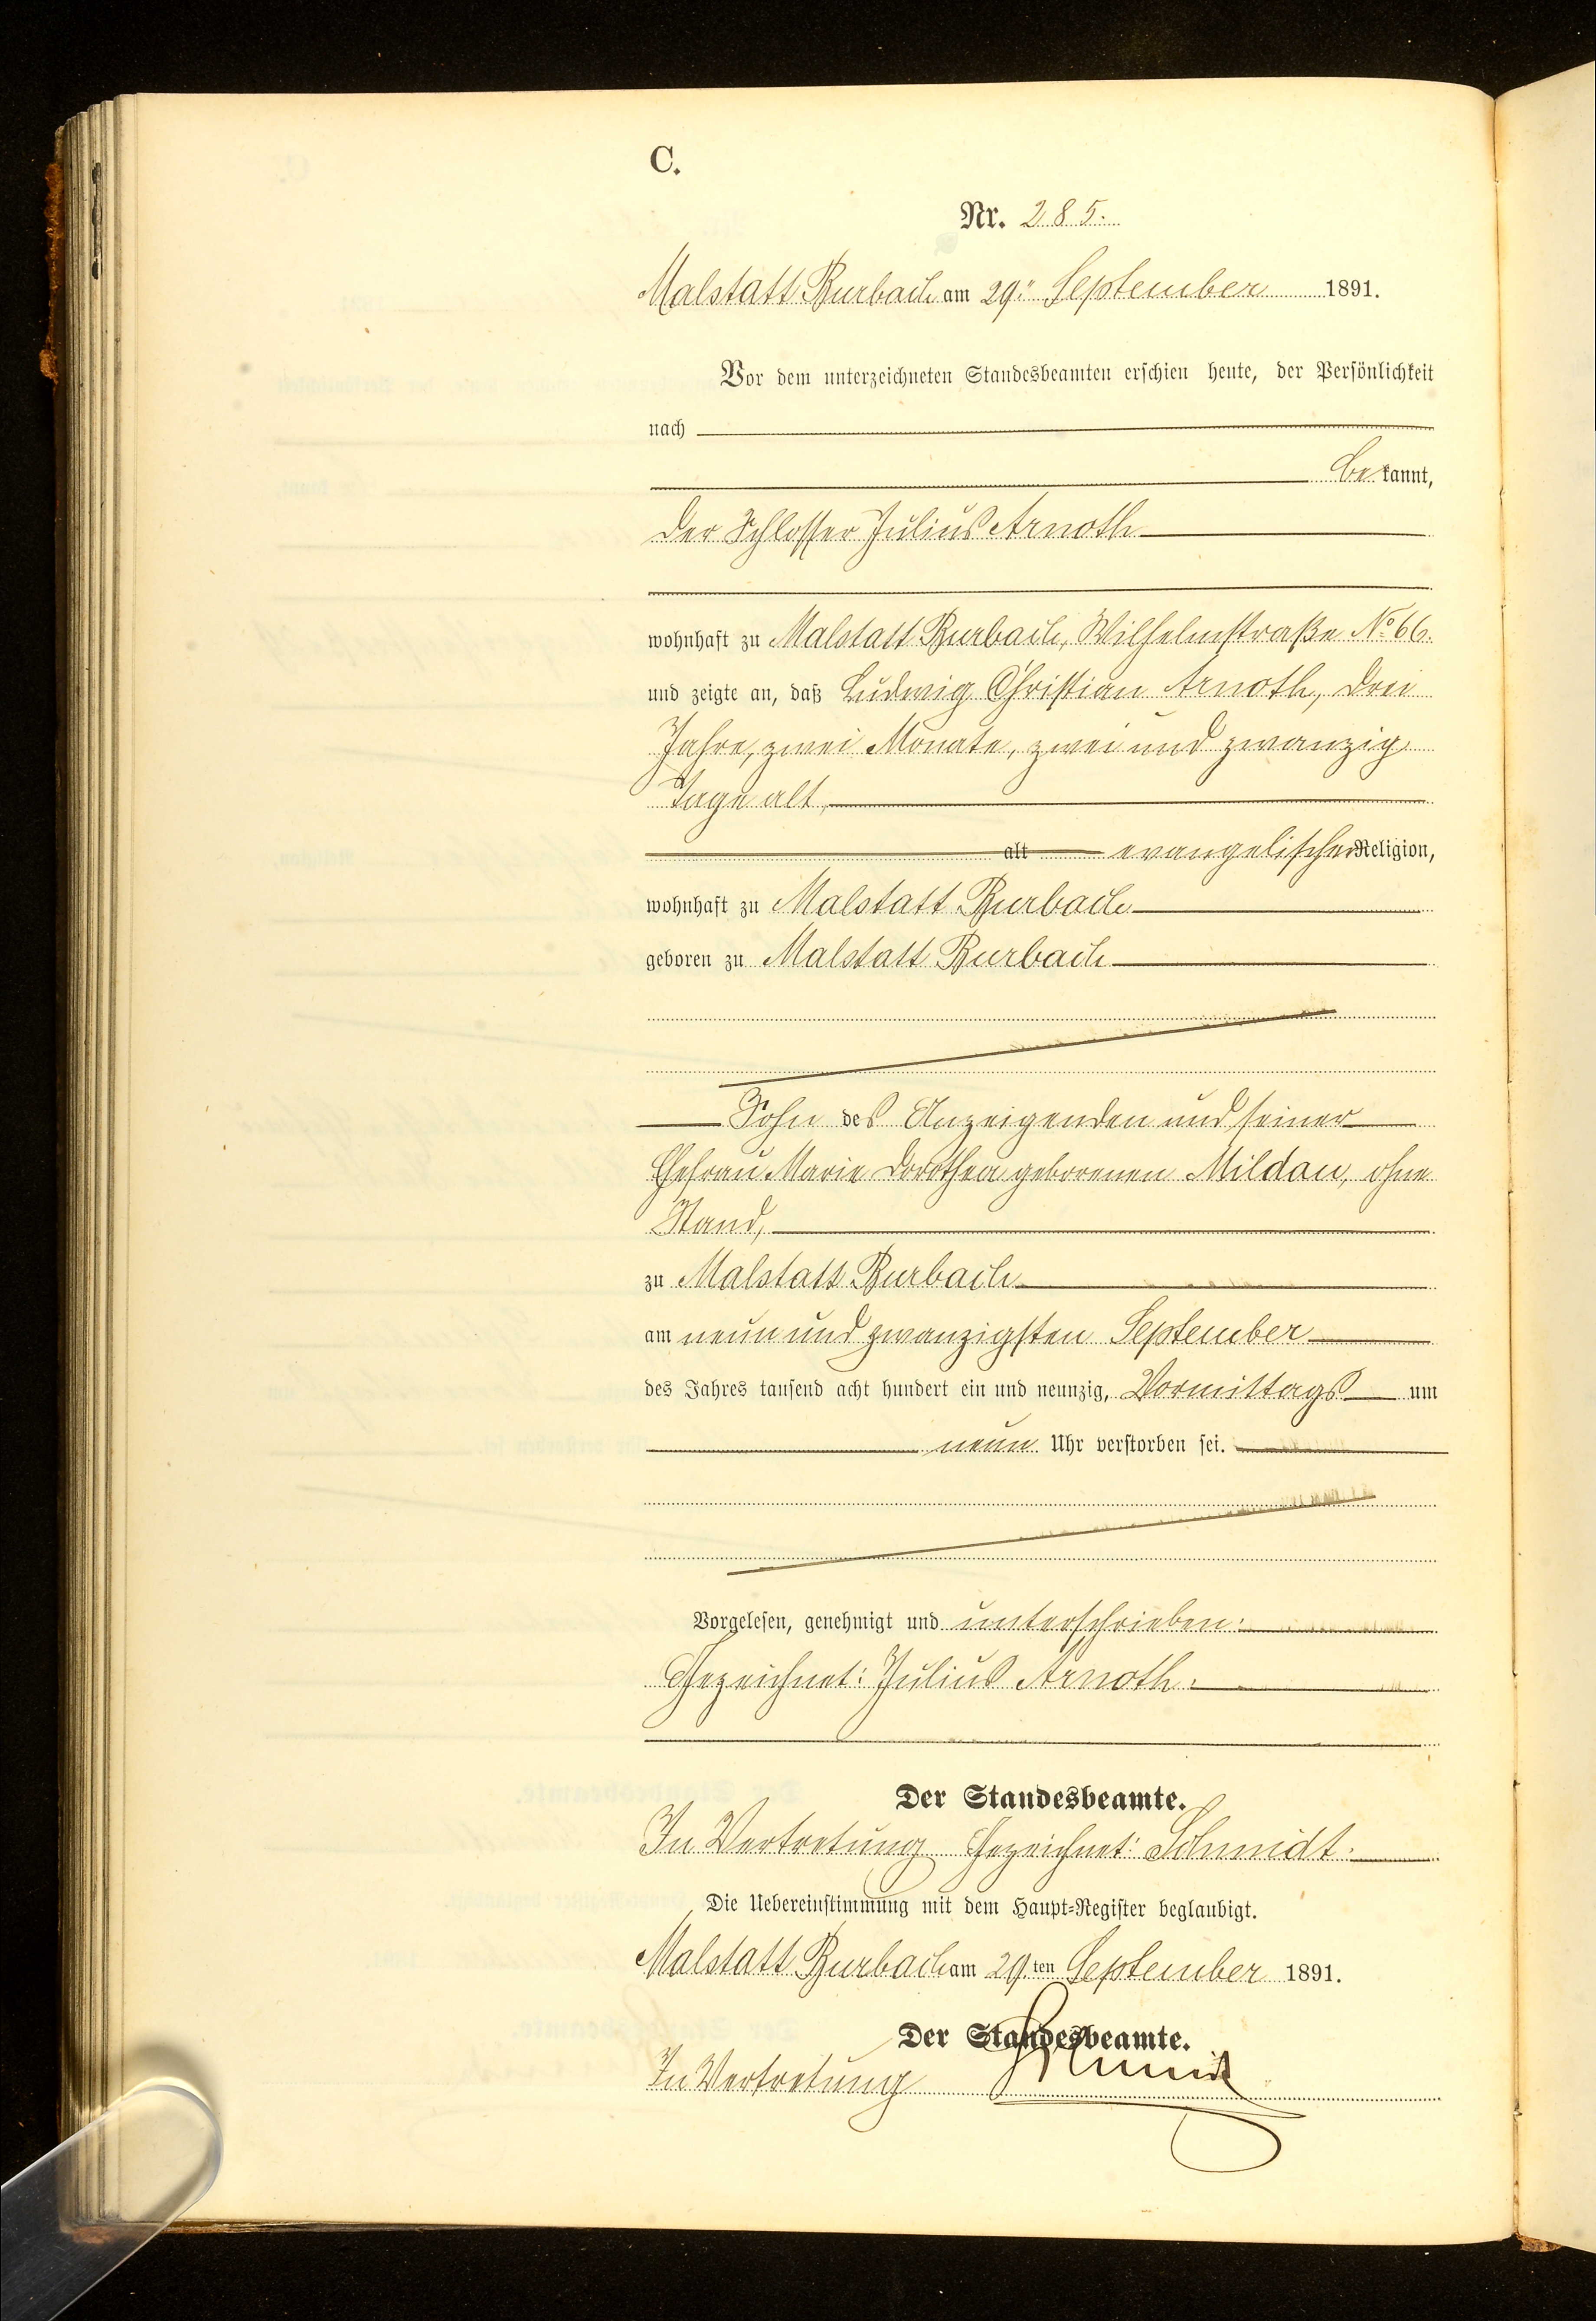 C.
Nr. 285.
Malstatt Burbach am 29.ⁿ September 1891.
Vor dem unterzeichneten Standesbeamten erschien heute, der Persönlichkeit
nach
be kannt,
der Schlosser Julius Arnoth
wohnhaft zu Malstatt Burbach, Wilhelmstraße No 66.
und zeigte an, daß Ludwig Christian Arnoth, drei
Jahre, zwei Monate, zwei und zwanzig
Tage alt,
alt evangelischer Religion,
wohnhaft zu Malstatt Burbach
geboren zu Malstatt Burbach
Sohn des Anzeigenden und seiner
Ehefrau Marie Dorothea geborenen Mildau, ohne
Stand,
zu Malstatt Burbach
am neun und zwanzigsten September
des Jahres tausend acht hundert ein und neunzig, Vormittags um
neun Uhr verstorben sei.
Vorgelesen, genehmigt und unterschrieben:
Gezeichnet: Julius Arnoth.
Der Standesbeamte.
In Vertretung Gezeichnet: Schmidt.
Die Uebereinstimmung mit dem Haupt-Register beglaubigt.
Malstatt Burbach am 29.ten September 1891.
Der Standesbeamte.
In Vertretung Schmidt